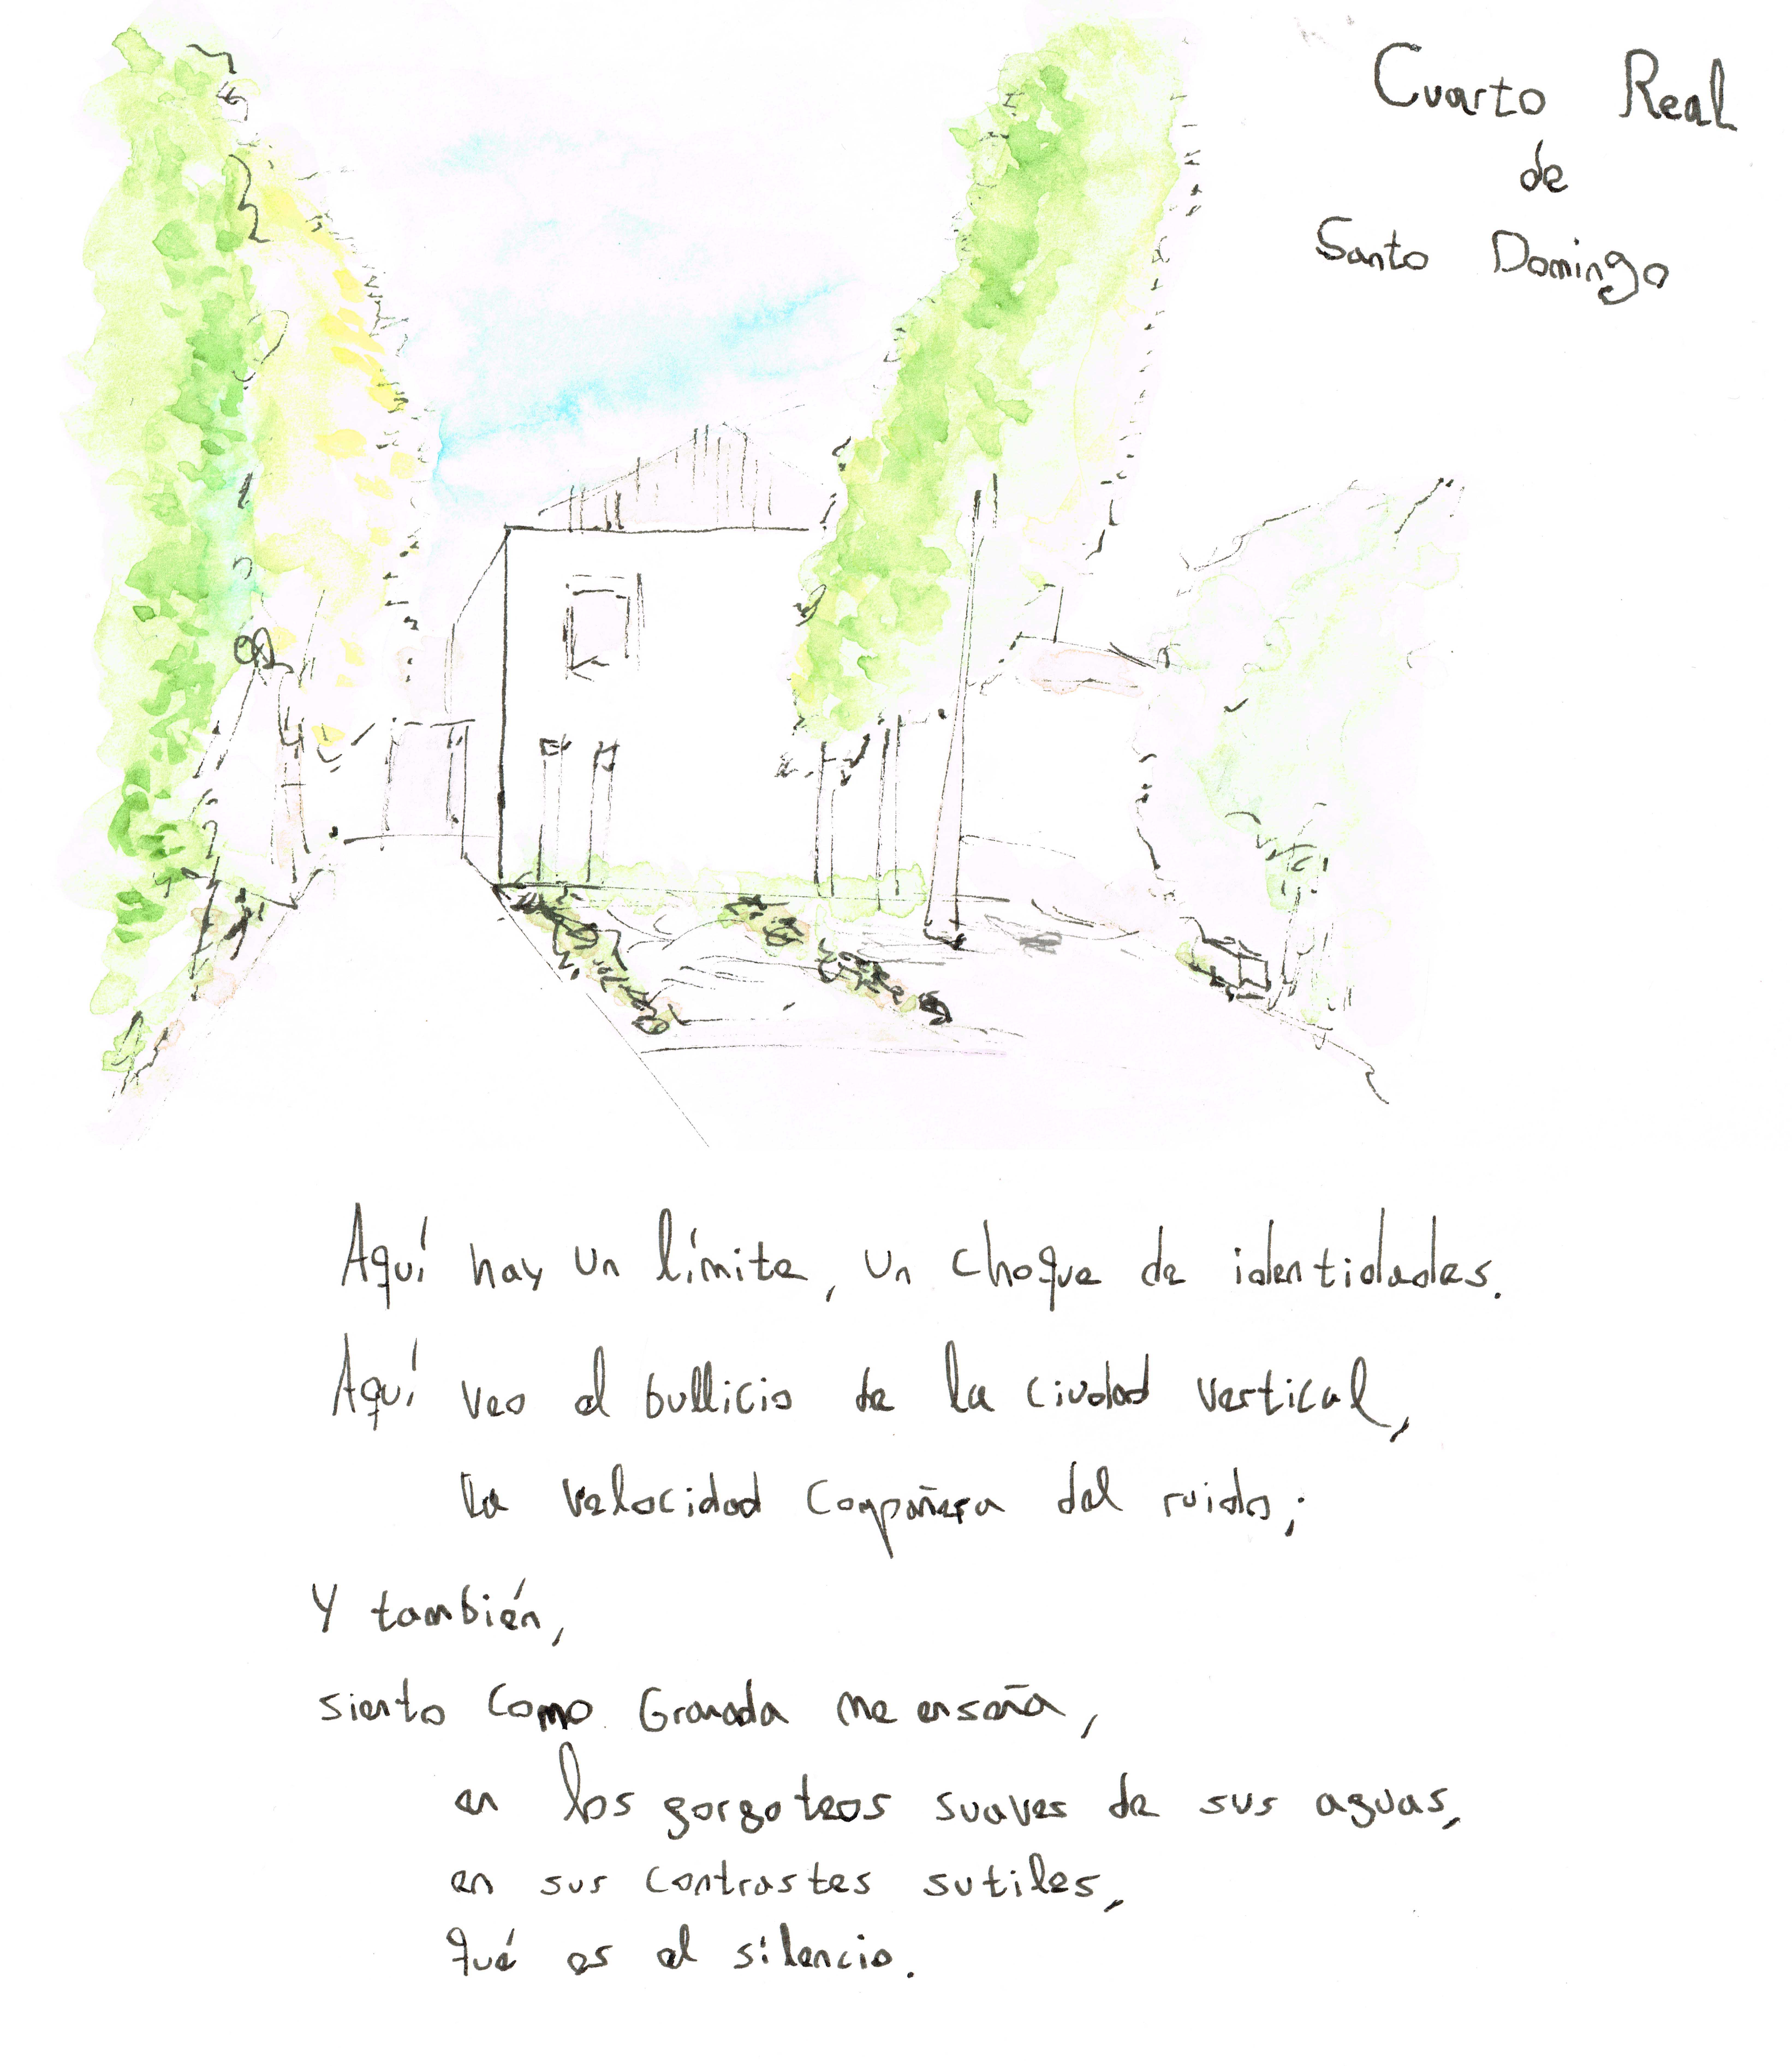 Cuarto Real
de
Santo Domingo
Aquí hay un límite, un choque de identidades.
Aquí veo el bullicio de la ciudad vertical,
la velocidad compañera del ruido;
Y también,
siento como Granada me enseña,
en los gorgoteos suaves de sus aguas,
en sus contrastes sutiles,
qué es el silencio.